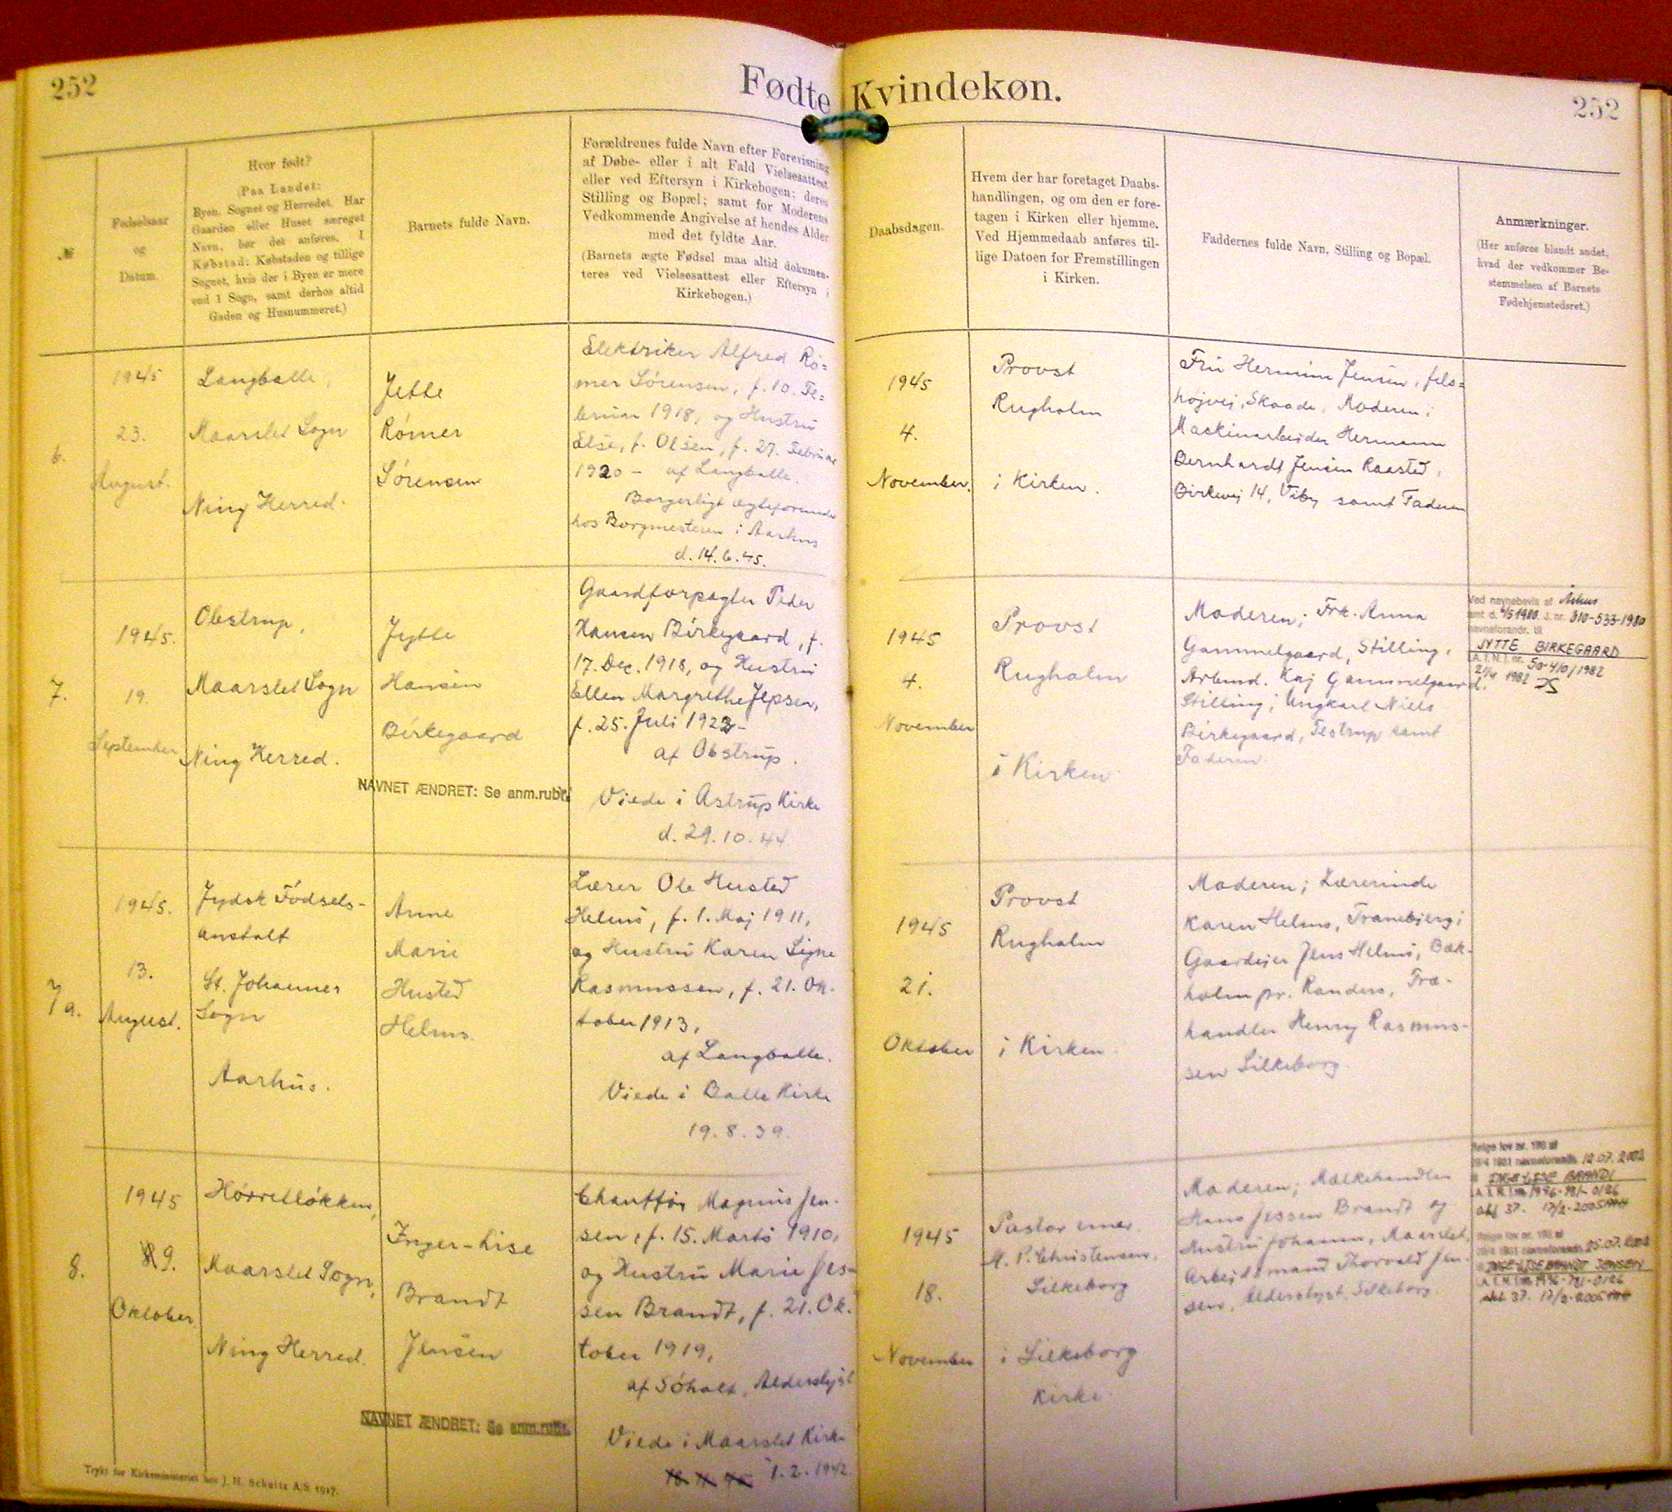 252
Fødte Kvindekøn.
252
№
Fødselsaar
og
Datum.
Hvor født?
(Paa Landet:
Byen, Sognet og Herredet. Har
Gaarden eller Huset særeget
Navn, bør det anføres. I
Købstad: Købstaden og tillige
Sognet, hvis der i Byen er mere
end 1 Sogn, samt derhos altid
Gaden og Husnummeret.)
Barnets fulde Navn.
Forældrenes fulde Navn efter Forevisning
af Døbe- eller i alt Fald Vielsesattest
eller ved Eftersyn i Kirkebogen; deres
Stilling og Bopæl; samt for Moderens
Vedkommende Angivelse af hendes Alder
med det fyldte Aar.
(Barnets ægte Fødsel maa altid dokumen-
teres ved Vielsesattest eller Eftersyn i
Kirkebogen.)
Daabsdagen.
Hvem der har foretaget Daabs-
handlingen, og om den er fore-
tagen i Kirken eller hjemme.
Ved Hjemmedaab anføres til-
lige Datoen for Fremstillingen
i Kirken.
Faddernes fulde Navn, Stilling og Bopæl.
Anmærkninger.
(Her anføres blandt andet,
hvad der vedkommer Be-
stemmelsen af Barnets
Fødehjemstedsret.)
6.
1945
23.
August.
Langballe,
Maarslet Sogn
Ning Herred.
Jette
Römer
Sörensen
Elektriker Alfred Rö=
mer Sörensen, f. 10. Fe=
bruar 1918, og Hustru
Else, f. Olsen, f. 27. Februar
1920 - af Langballe.
Borgerligt ægteforenede
hos Borgmesteren i Aarhus
d. 14.6.45.
1945
4.
November.
Provst
Rugholm
i Kirken.
Fru Hermine Jensen,
højvej, Skaade, Moderen;
Maskinarbejder Hermann
Bernhardt Jensen Raasted,
Birkevej 14, Viby samt Faderen
7.
1945.
19.
September
Obstrup,
Maarslet Sogn
Ning Herred.
Jytte
Hansen
Birkegaard
NAVNET ÆNDRET: Se anm.rubr.
Gaardforpagter Peder
Hansen Birkegaard, f.
17. Dec. 1918, og Hustru
Ellen Margrethe Jepsen,
f. 25. Juli 1923-
af Obstrup.
Viede i Astrup Kirke
d. 29.10.44
1945
4.
November
Provst
Rugholm
i Kirken
Moderen; Frk. Anna
Gammelgaard, Stilling,
Arbmd. Kaj Gammelgaard,
Stilling; Ungkarl Niels
Birkegaard, Testrup samt
Faderen
Ved navnebevis af Århus
amt d. 1980 j. nr. 310-533-1980
navneforandr. til
JYTTE BIRKEGAARD
7a.
1945.
13.
August.
Jydsk Födsels-
anstalt
St. Johannes
Sogn
Aarhus.
Anne
Marie
Husted
Helms.
Lærer Ole Husted
Helms, f. 1. Maj 1911,
og Hustru Karen Signe
Rasmussen, f. 21. Ok-
tober 1913,
af Langballe.
Viede i Balle Kirke
19.8.39.
1945
21.
Oktober
Provst
Rugholm
i Kirken
Moderen; Lærerinde
Karen Helms, Tranebjerg;
Gaardejer Jens Helms, Bæk-
holm pr. Randers, Træ-
handler Henry Rasmus-
sen Silkeborg.
8.
1945
9.
Oktober
Hörretlökken,
Maarslet Sogn,
Ning Herred.
Inger-Lise
Brandt
Jensen
NAVNET ÆNDRET: Se anm.rubr.
Chauffør Magnus Jen-
sen, f. 15. Marts 1910,
og Hustru Marie Jes-
sen Brandt, f. 21. Ok-
tober 1919,
af Söholt, Alderslyst
Viede i Maarslet Kirke
1.2.1942.
1945
18.
November
Pastor emer.
M. P. Christensen,
Silkeborg
i Silkeborg
Kirke
Moderen; Mælkehandler
Hans Jessen Brandt og
Hustru Johanne, Maarslet,
Arbejdsmand Thorvald Jen-
sen, Alderslyst, Silkeborg.
INGE LISE BRANDT
INGE LISE BRANDT JENSEN
Trykt for Kirkeministeriet hos J. H. Schultz A/S 1917.